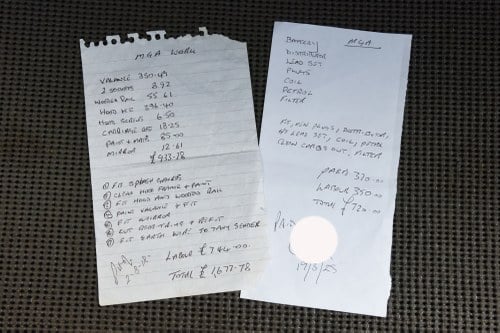 MGA WORK
VALANCE 350-49
2 SPOUTS 8.92
WOODEN RAIL 55.61
HOOD KIT 396-40
SCREWS 6-50
CARRIAGE 18-25
PAINT + MATS 85-00
MIRROR 12.61
£933.78
① FIT SPLASH GUARDS
② CLEAN HOOD FRAME + PAINT
③ FIT HOOD AND WOODEN RAIL
④ PAINT VALANCE + FIT
⑤ FIT MIRROR
⑥ CUT REAR TRIM + REFIT
⑦ FIT EARTH WIRE TO TANK SENDER
LABOUR £744-00
TOTAL £1,677-78
MGA
BATTERY
DISTRIBUTOR
LEAD SET
PLUGS
COIL
PETROL
FILTER
PLUGS, DISTRIBUTOR,
HT LEAD SET, COIL, PETROL
BLOW CARBS OUT, FILTER
PARTS 370-00
LABOUR 350-00
TOTAL £720-00